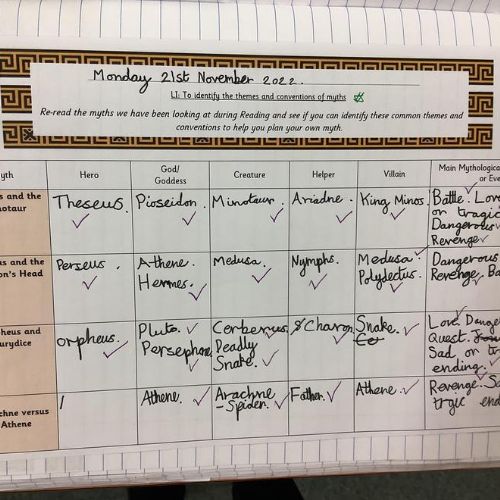 Monday 21st November 2022.
LI: To identify the themes and conventions of myths
Re-read the myths we have been looking at during Reading and see if you can identify these common themes and
conventions to help you plan your own myth.
yth Hero God/ Goddess Creature Helper Villain Main Mythologica or Eve
s and the
otaur
Theseus. Pioseidon. Minotaur. Ariadne. King Minos. Battle. Love
on tragic
Dangerous
Revenge
us and the
on's Head
Perseus. Athene. Medusa. Nymphs. Medusa. Dangerous
Hermes. Polydectus. Revenge. Ba
heus and
urydice
orpheus. Pluto. Cerberus. Charon. Snake. Love. Dange
Persephone Deadly Quest.
Snake. Sad, on tr
ending.
chne versus
Athene
/ Athene. Arachne Father. Athene. Revenge. S
- Spider. trgic end